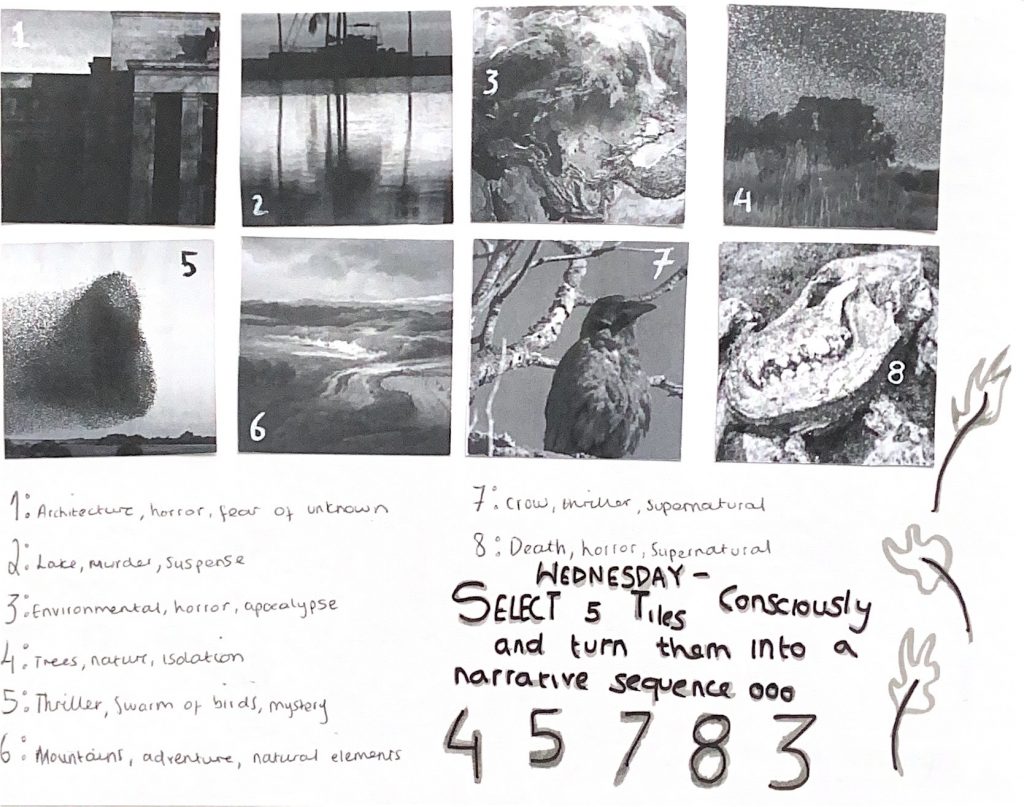 1
2
3
4
5
6
7
8
1: Architecture, horror, fear of unknown
2: Lake, murder, suspense
3: Environmental, horror, apocalypse
4: Trees, nature, isolation
5: Thriller, swarm of birds, mystery
6: Mountains, adventure, natural elements
7: Crow, thriller, supernatural
8: Death, horror, supernatural
WEDNESDAY -
SELECT 5 TILES Consciously
and turn them into a
narrative sequence ooo
4 5 7 8 3